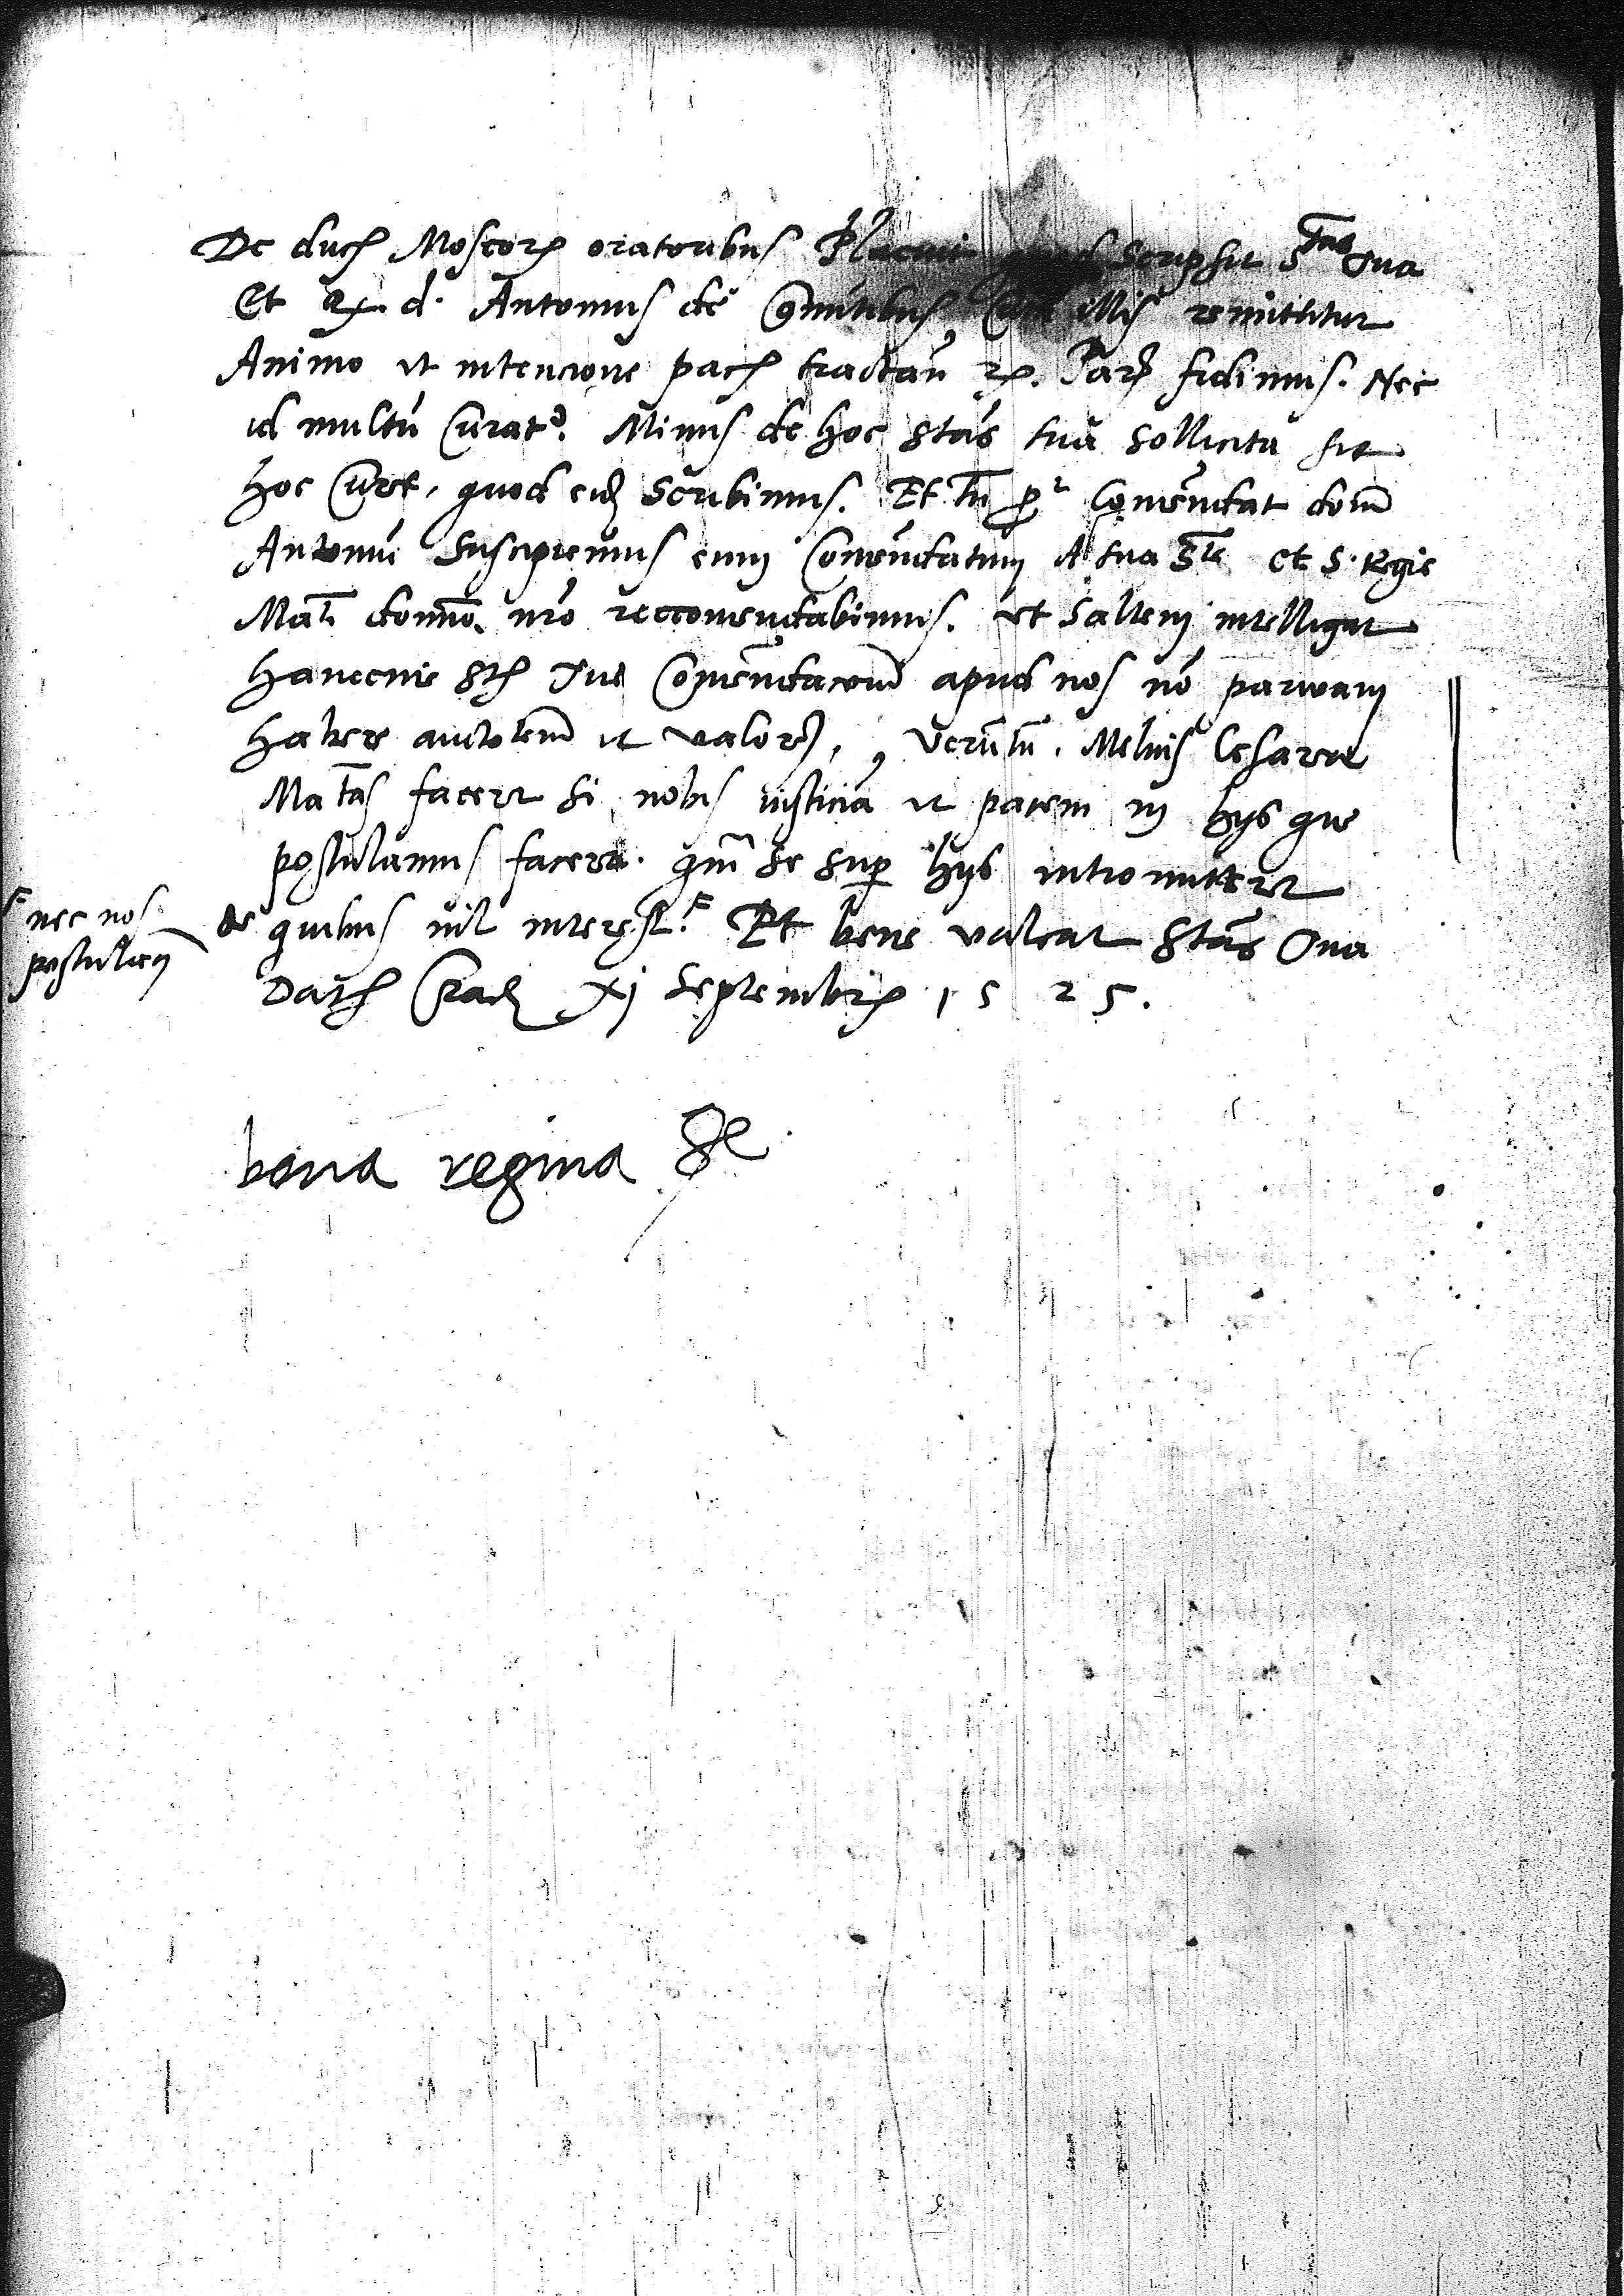 De ducis Moscorum oratoribus Placuit quod Scripsit Stas Sua
Et q. d. Antonius de Comitibus Cum illis remittitur
Animo et intencione pacis tractan. etc. Par fidimus. Nec
id multu Curatr. Minus de hoc Stas sua sollicita sit
hoc Curet, quod eid Scribimus. Et tn pr Comendat dom
Antoniu suscipiemus eum Comendatum A sua Ste et S. Regie
Mati domino nro reccomendabimus. ut Saltem intelligat
hanc Stis Sue Comendacionem apud nos no parvam
habere auctotem et valorem, Verutn. Melius Cesarea
Matas faceret si nobis iusticia et pacem in hys que
postulamus faceret. qm se super hys intromitteret
de quibus nil interest. Et bene valeat Stas Sua
nec nos
postulam
Datis Crac xj Septembris 1525.
bona regina